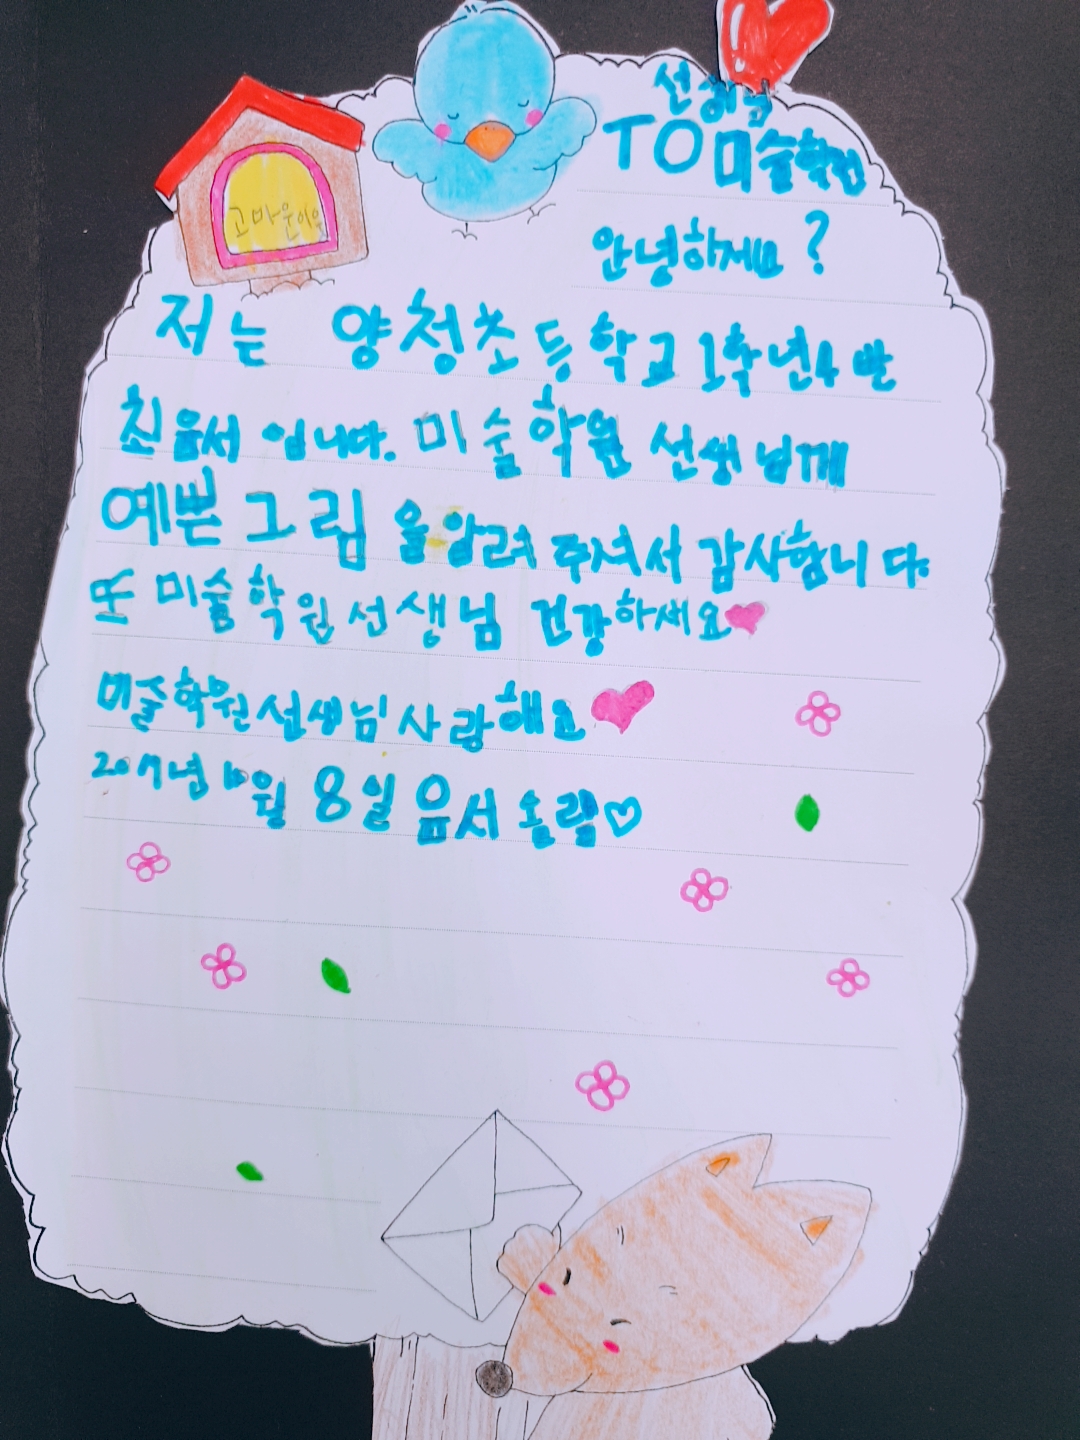 선생님
TO 미술학원
고마운 마음
안녕하세요?
저는 양청초등학교 1학년 4반
최윤서 입니다. 미술학원 선생님께
예쁜 그림을 알려 주셔서 감사합니다.
또 미술학원 선생님 건강하세요
미술학원 선생님 사랑해요
월 8일 윤서 올림